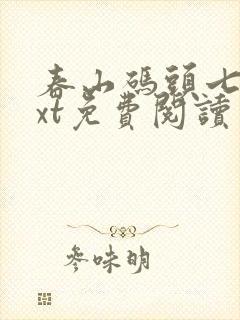 春山碼頭七
xt免費閱讀
參味明